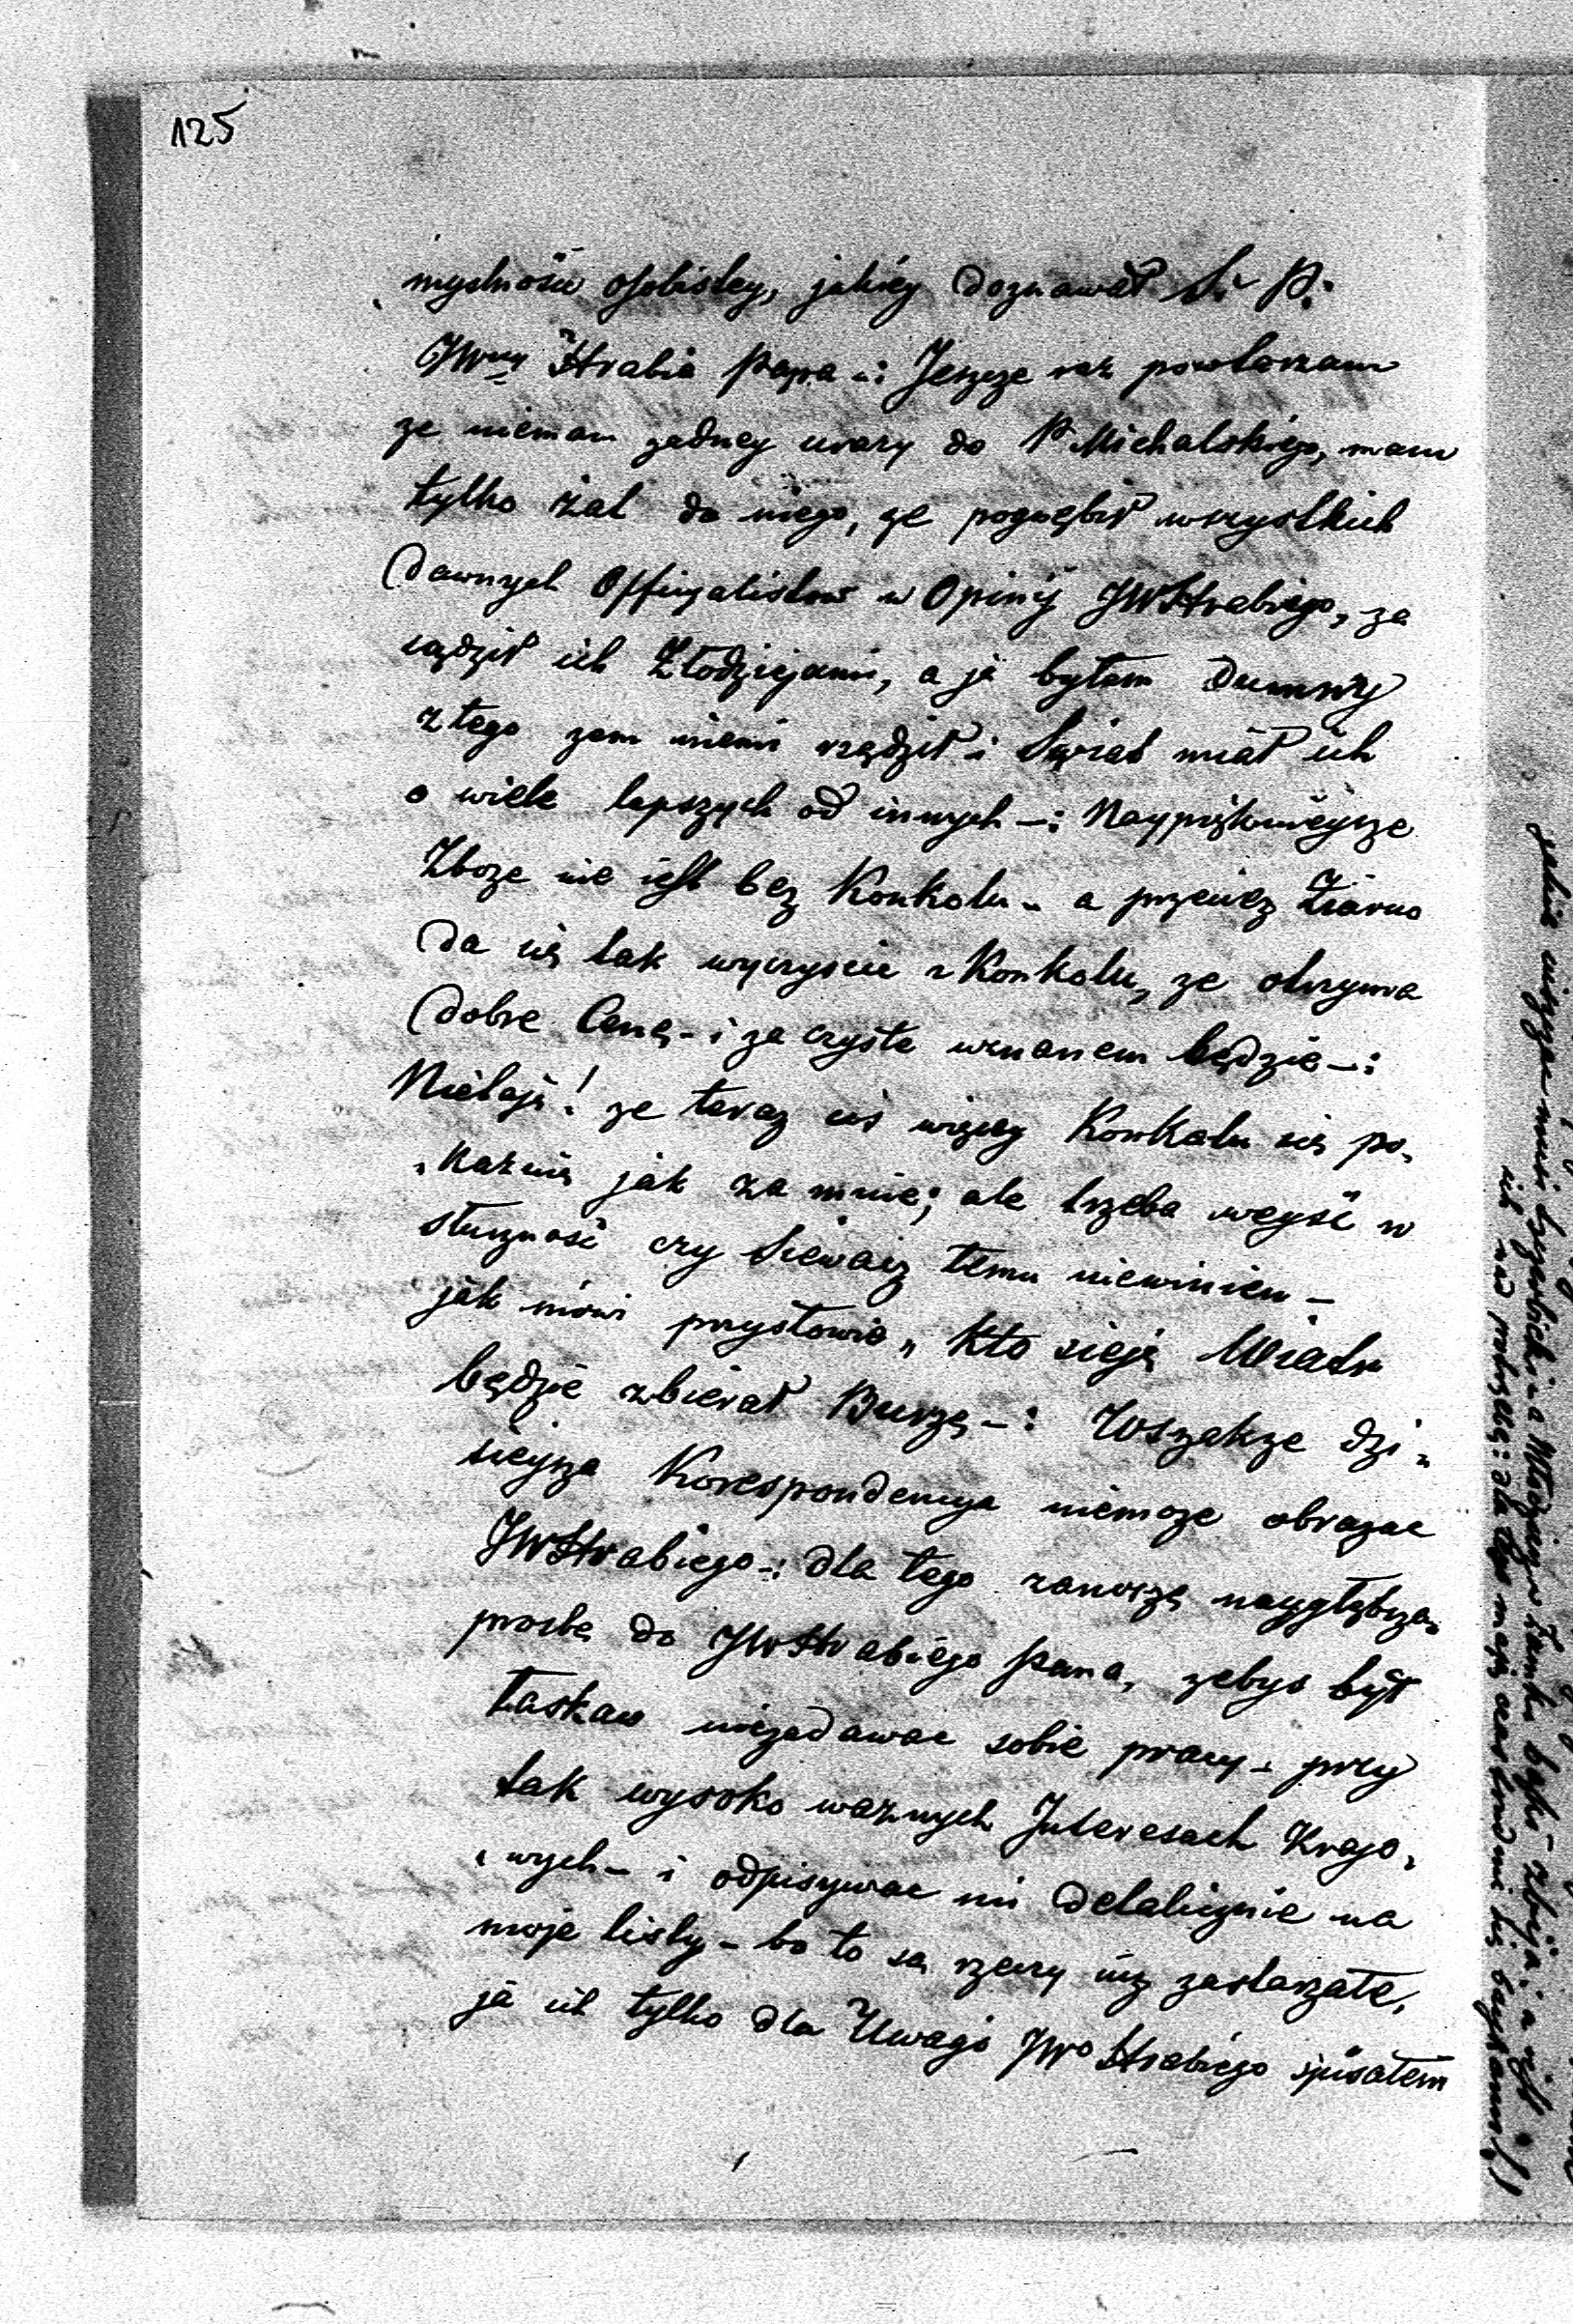 125
myślności osobistey, jakiéy doznawał Ś. P.
JWny Hrabia Papa -: Jeszcze raz powtarzam
ze niemam zadney urazy do P Michalskiego, mam
tylko żal do niego, ze pognębił wszystkich
Dawnych Officyalistow w Opinij JWHrabiego, za
sądził ich Złodziejami, a ja byłem dumny
z tego zem niemi rządził i Swiat miał ich
o wiele lepszych od innych -: Naypiękniéysze
Zboze nie iest bez Konkolu - a przeciez Ziarno
da się tak wyczyscic z Konkolu, ze otrzyma
Dobre Cenę - i za czyste uznanem będzie -:
Nietaję! ze teraz cos więcey Konkolu się po„
„kaznię jak za mnie; ale trzeba weyść w
słuzność czy Siewacz temu niewinien -
jak mówi przysłowie „ Kto sieję Wiatr
będzie zbierał Burzę -: Wszakze dzi„
sieysza Korespondencya niemoze obrazac
JWHrabiego -: dla tego zanoszę naygłębszą
prosbę do JWHrabiego Pana, zebys był
łaskaw niezadawac sobie pracy - przy
tak wysoko waznych Interesach Krajo„
„wych - i odpisywac mi detalicznie na
moje listy - bo to są rzeczy iuz zastarzałe,
ja ich tylko dla Uwagi JWo Hrabiego spisałem